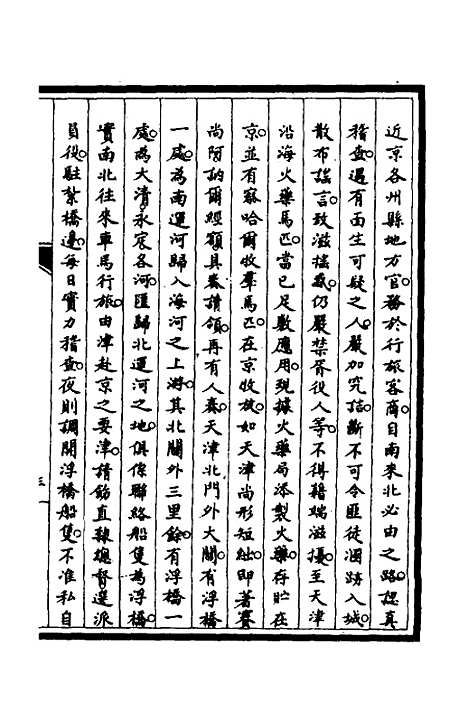 近京各州縣地方官務於行旅客商自南來北必由之路認真
稽查遇有面生可疑之人嚴加究詰斷不可令匪徒溷跡入城
散布謠言致滋搖惑仍嚴禁胥役人等不得藉端滋擾至天津
沿海火藥馬匹當已足敷應用現據火藥局添製火藥存貯在
京並有察哈爾收羣馬匹在京收放如天津尚形短絀即著賽
尚阿訥爾經額具奏請領再有人奏天津北門外大關有浮橋
一處為南運河歸入海河之上游其北關外三里餘有浮橋一
處為大清永定各河匯歸北運河之地俱係聯絡船隻為浮橋
實南北往來車馬行旅由津赴京之要津請飭直隸總督選派
員役駐紮橋邊每日實力稽查夜則調開浮橋船隻不准私自
三